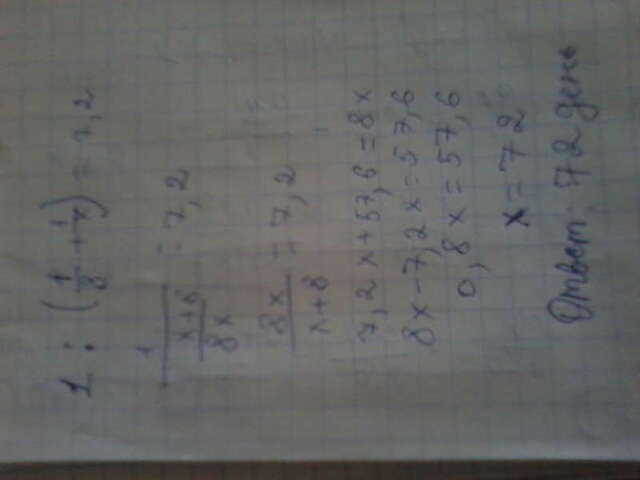 1 : (1/8 + 1/x) = 7,2
1/((x+8)/8x) = 7,2
8x/(x+8) = 7,2
7,2x+57,6=8x
8x-7,2x=57,6
0,8x=57,6
x=72
Ответ: 72 день